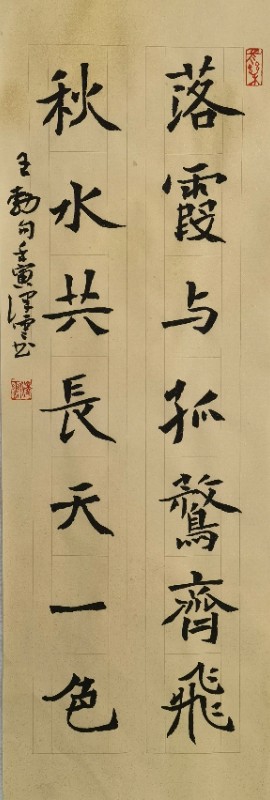 落霞与孤鶩齊飛
秋水共長天一色
王勃句壬寅澤雲书